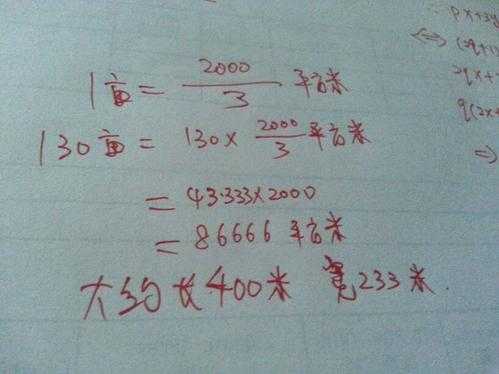 1亩 = 2000/3 平方米
130亩 = 130 × 2000/3 平方米
= 43.333×2000
= 86666 平方米
大约长400米 宽233米.
PX+3
⇔ (2q+1
2qx+
q(2x
⇒